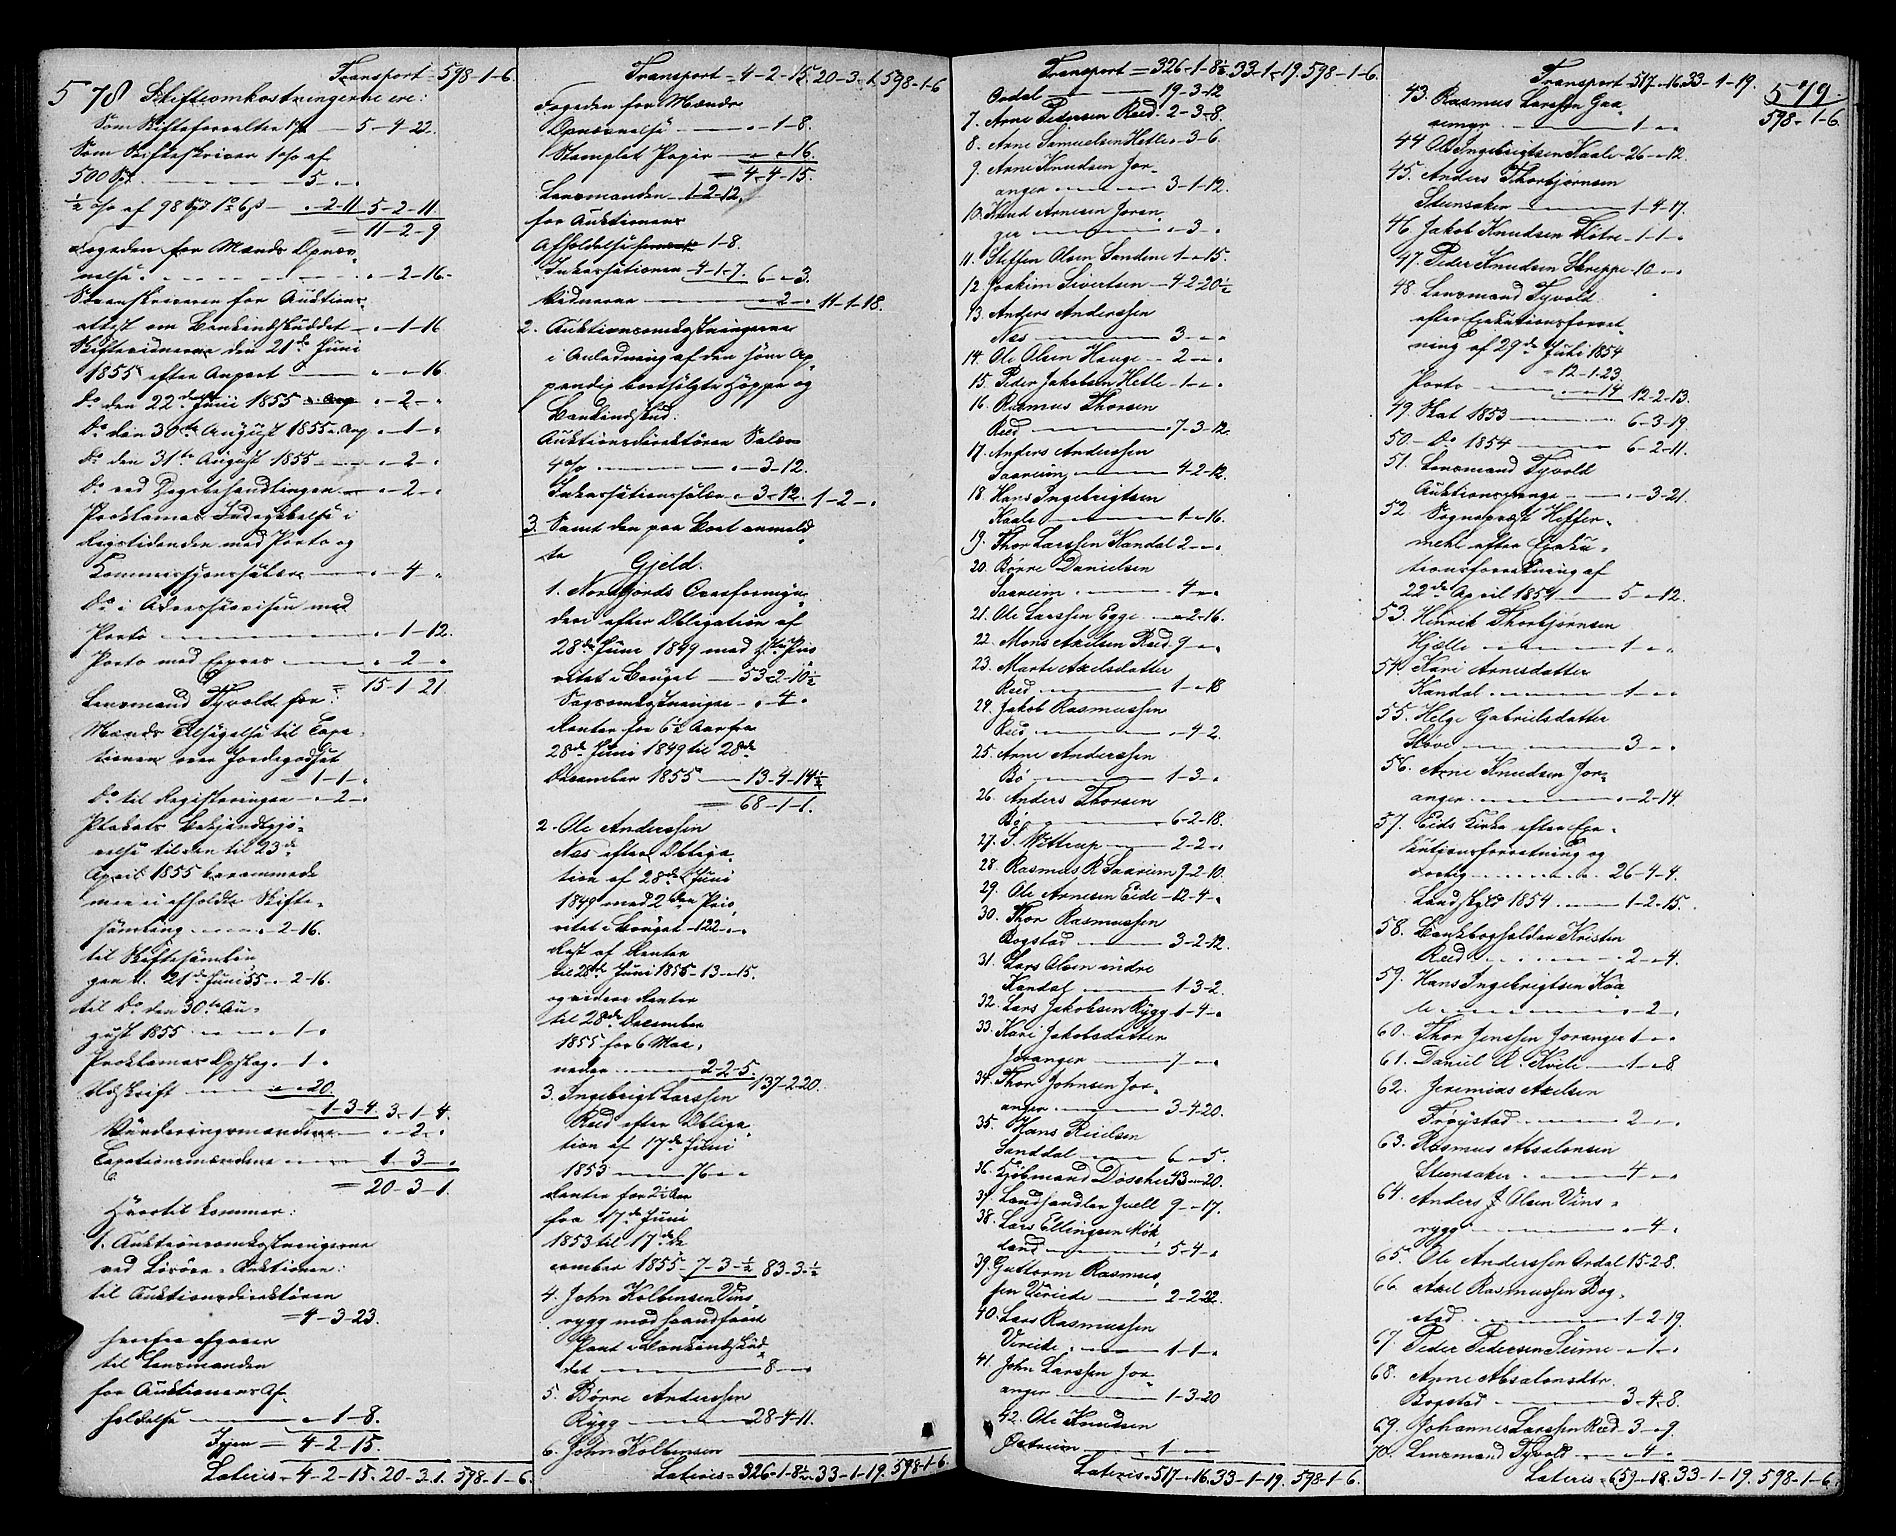 578
Transport = 598-1-6.
Skifteomkostningerne ere:
Som Skifteforvalter 1% — 5-4-22.
Som Skifteskriver 1% af
500 Sp. — 5 - „ - „
½ % af 98 Spd 1 6 s — „-2-11 5-2-11.
= 11-2-9.
Fogeden for Mænds Opnæv-
nelse — „-2-16.
Sorenskriveren for Auktions-
attest om Bankindskuddet — „-1-16
Skiftevidnerne den 21de Juni
1855 efter Anpart — „ - „ 16.
Do den 22de Juni 1855 „-2-„
Do den 30te August 1855 „-1-„
Do den 31te August 1855 — „-2-„
Do ved Dagsbehandlingen — „-2-„
Proklamas Indrykkelse i
Rigstidenden med Porto og
Kommissionssalær — „-4-„
Do i Adresseavisen med
Porto — „-1-12.
Porto med Expres — „-2-„
= 15-1-21
Lensmand Tyvold for:
Mænds Tilsigelse til Taxa-
tionen over Jordegodset
= 1-1-„
Do til Registreringen — „-2-„
Plakats Bekjendtgjø-
relse til den til 23de
April 1855 berammede
men ei afholdte Skifte-
samling — „-2-16.
til Skiftesamlin-
gen d. 21de Juni 55 „-2-16.
til Do den 30te Au-
gust 1855 — „-1-„
Proklamas Opslag „-1-„
Udskrift — „-„-20.
1-3-4. 3-1-4.
Vurderingsmændene — „-2-„
Taxationsmændene — 1-3-„
= 20-3-1.
Hvortil kommer:
1. Auktionsomkostningerne
ved Løsøre-Auktionen:
til Auktionsdirektøren
= 4-3-23.
herfra afgaaer
til Lensmanden
for Auktionens Af-
holdelse — „-1-8.
Igjen = 4-2-15.
Lateris = 4-2-15. 20-3-1. 598-1-6.
Transport = 4-2-15 20-3-1 598-1-6
Fogeden for Mænds
Opnævnelse — „-1-8.
Stemplet Papir — „-„-16.
= 4-4-15.
Lensmanden 1-2-12,
for Auktionens
Afholdelse 1-8.
Inkassationen 4-1-7. 6-„-3.
Vidnerne — „-2-„ 11-1-18.
2. Auktionsomkostningerne
i Anledning af den som Ap-
pendix bortsolgte Høppe og
Bankindskud:
Auktionsdirektørens Salær
4% — „-3-12.
Inkassationssalær „-3-12. 1-2-„
3. Samt den paa Boet anmeld-
te
Gjeld.
1. Nordfjords Overformyn-
deri efter Obligation af
28de Juni 1849 med 1ste Prio
ritet i Bruget — 53-2-10½
Sagsomkostninger — „-4-„
Renter for 6½ Aar fra
28de Juni 1849 til 28de
December 1855 — 13-4-14½
= 68-1-1.
2. Ole Anderssen
Næs efter Obliga-
tion af 28de Juni
1849 med 2den Prio-
ritet i Bruget — 122-„-„
Rest af Renter
til 28de Juni 1855 - 13-„-15.
og videre Renter
til 28de December
1855 for 6 Maa-
neder — 2-2-5. 137-2-20.
3. Ingebrigt Larssen
Reed efter Obliga-
tion af 17de Juni
1853 — 76-„-„
Renter for 2½ Aar
fra 17de Juni
1853 til 17de De
cember 1855 - 7-3-½ 83-3-½
4. John Kolbensen Vins
rygg mod haandfaaet
Pant i Bankindskud-
det — 8-„-„
5. Børre Anderssen
Rygg — 28-4-11.
6. John Kolbensen
Lateris = 326-1-8½ 33-1-19. 598-1-6.
Transport = 326-1-8½ 33-1-19. 598-1-6.
Ordal — 19-3-12
7. Arne Pedersen Reed. 2-3-8.
8. Arne Samuelsen Hetle „-3-6.
9. Arne Knudsen Jor-
anger — 3-1-12.
10. Knud Arnesen Joran-
ger — „-3-„
11. Steffen Olsen Sandene 1-„-15.
12. Joakim Sivertsen — 4-2-20½
13. Anders Anderssen
Næs — 3-„-„
14. Ole Olsen Hauge — 2-„-„
15. Peder Jakobsen Hetle — 1-„-„
16. Rasmus Thorsen
Reed — 7-3-12.
17. Anders Anderssen
Saareim — 4-2-12.
18. Hans Ingebrigtsen
Kaale — 1-„-16.
19. Thor Larssen Kandal 2-„-„
20. Børre Danielsen
Saareim — 4-„-„
21. Ole Larssen Egge — „-2-16.
22. Mons Axelsen Reed 9-„-„
23. Marte Axelsdatter
Reed — 1-„-18
24. Jakob Rasmussen
Reed — „-4-2.
25. Arne Anderssen
Bø — 1-3-„
26. Anders Thorsen
Bø — 6-2-18.
27. S. Wettrup — 2-2-„
28. Rasmus R. Saareim 9-2-10.
29. Ole Arnesen Eide — 12-4-„
30. Thor Rasmussen
Bogstad — 3-2-12.
31. Lars Olsen indre
Kandal — 1-3-2.
32. Lars Jakobsen Rygg 1-4-„
33. Kari Jakobsdatter
Joranger — 7-„-„
34. Thor Johnsen Jor-
anger — 3-4-20.
35. Hans
Sanddal — 6-„-5.
36. Kjøbmand Döscher 43-„-20.
37. Landhandler Juell 9-„-17.
38. Lars Ellingsen Møk-
land — 5-4-„
39. Guttorm Rasmus-
sen Vereide — 2-2-22.
40. Lars Rasmussen
Vereide — 1-1-„
41. John Larssen Jor-
anger — 1-3-20
42. Ole Knudsen
Østreim — 1-„-„
Lateris = 517-„-16. 33-1-19. 598-1-6.
579.
Transport = 517-„-16. 33-1-19. 598-1-6.
43. Rasmus Larssen Gaa
remyr — 1-„-„
44. Ole Ingebrigtsen Kaale - 26-„-12.
45. Anders Thorbjørnsen
Steensaker — 1-4-17.
46. Jakob Knudsen Fløtre - 1-1-„
47. Peder Knudsen Skreppe - 10-„-„
48. Lensmand Tyvold:
efter Exekutionsforret-
ning af 29de Juni 1854
= 12-1-23.
Porto — „-„-14 12-2-13.
49. Skat 1853 — 6-3-19
50. Do 1854 — 6-2-11.
51. Lensmand Tyvold
Auktionspenge — „-3-21.
52. Sognepræst Heffer-
mehl efter Exeku-
tionsforretning af
22de April 1854 — 5-„-12.
53. Henrik Thorbjørnsen
Hjelle — 1-„-„
54. Kari Arnesdatter
Kandal — 1-„-„
55. Helge Gabrielsdatter
Støve — 3-„-„
56. Arne Knudsen Jor-
anger — „-2-14.
57. Eids Kirke efter Exe-
kutionsforretning og
forlig — 26-4-4.
Landskyld 1854 — 1-2-15.
58. Bankbogholder Kristen
Reed — 2-„-4.
59. Hans Ingebrigtsen Kaa
le — „-2-„
60. Thor Jenssen Joranger 1-„-„
61. Daniel R. Kvile — 1-„-8
62. Jeremias Axelsen
Frøystad — 2-„-„
63. Rasmus Absalonsen
Steensaker — 4-„-„
64. Anders J. Olsen Vins-
rygg — „-4-„
65. Ole Anderssen Ordal 15-2-8.
66. Axel Rasmussen Bog-
stad — 1-2-19.
67. Peder Pedersen Seime - „-1-„
68. Arne Absalonsdtr.
Bogstad — 3-4-8.
69. Johannes Larssen Reed 3-„-9.
70. Lensmand Tyvold — „-4-„
Lateris = 659-„-18. 33-1-19. 598-1-6.